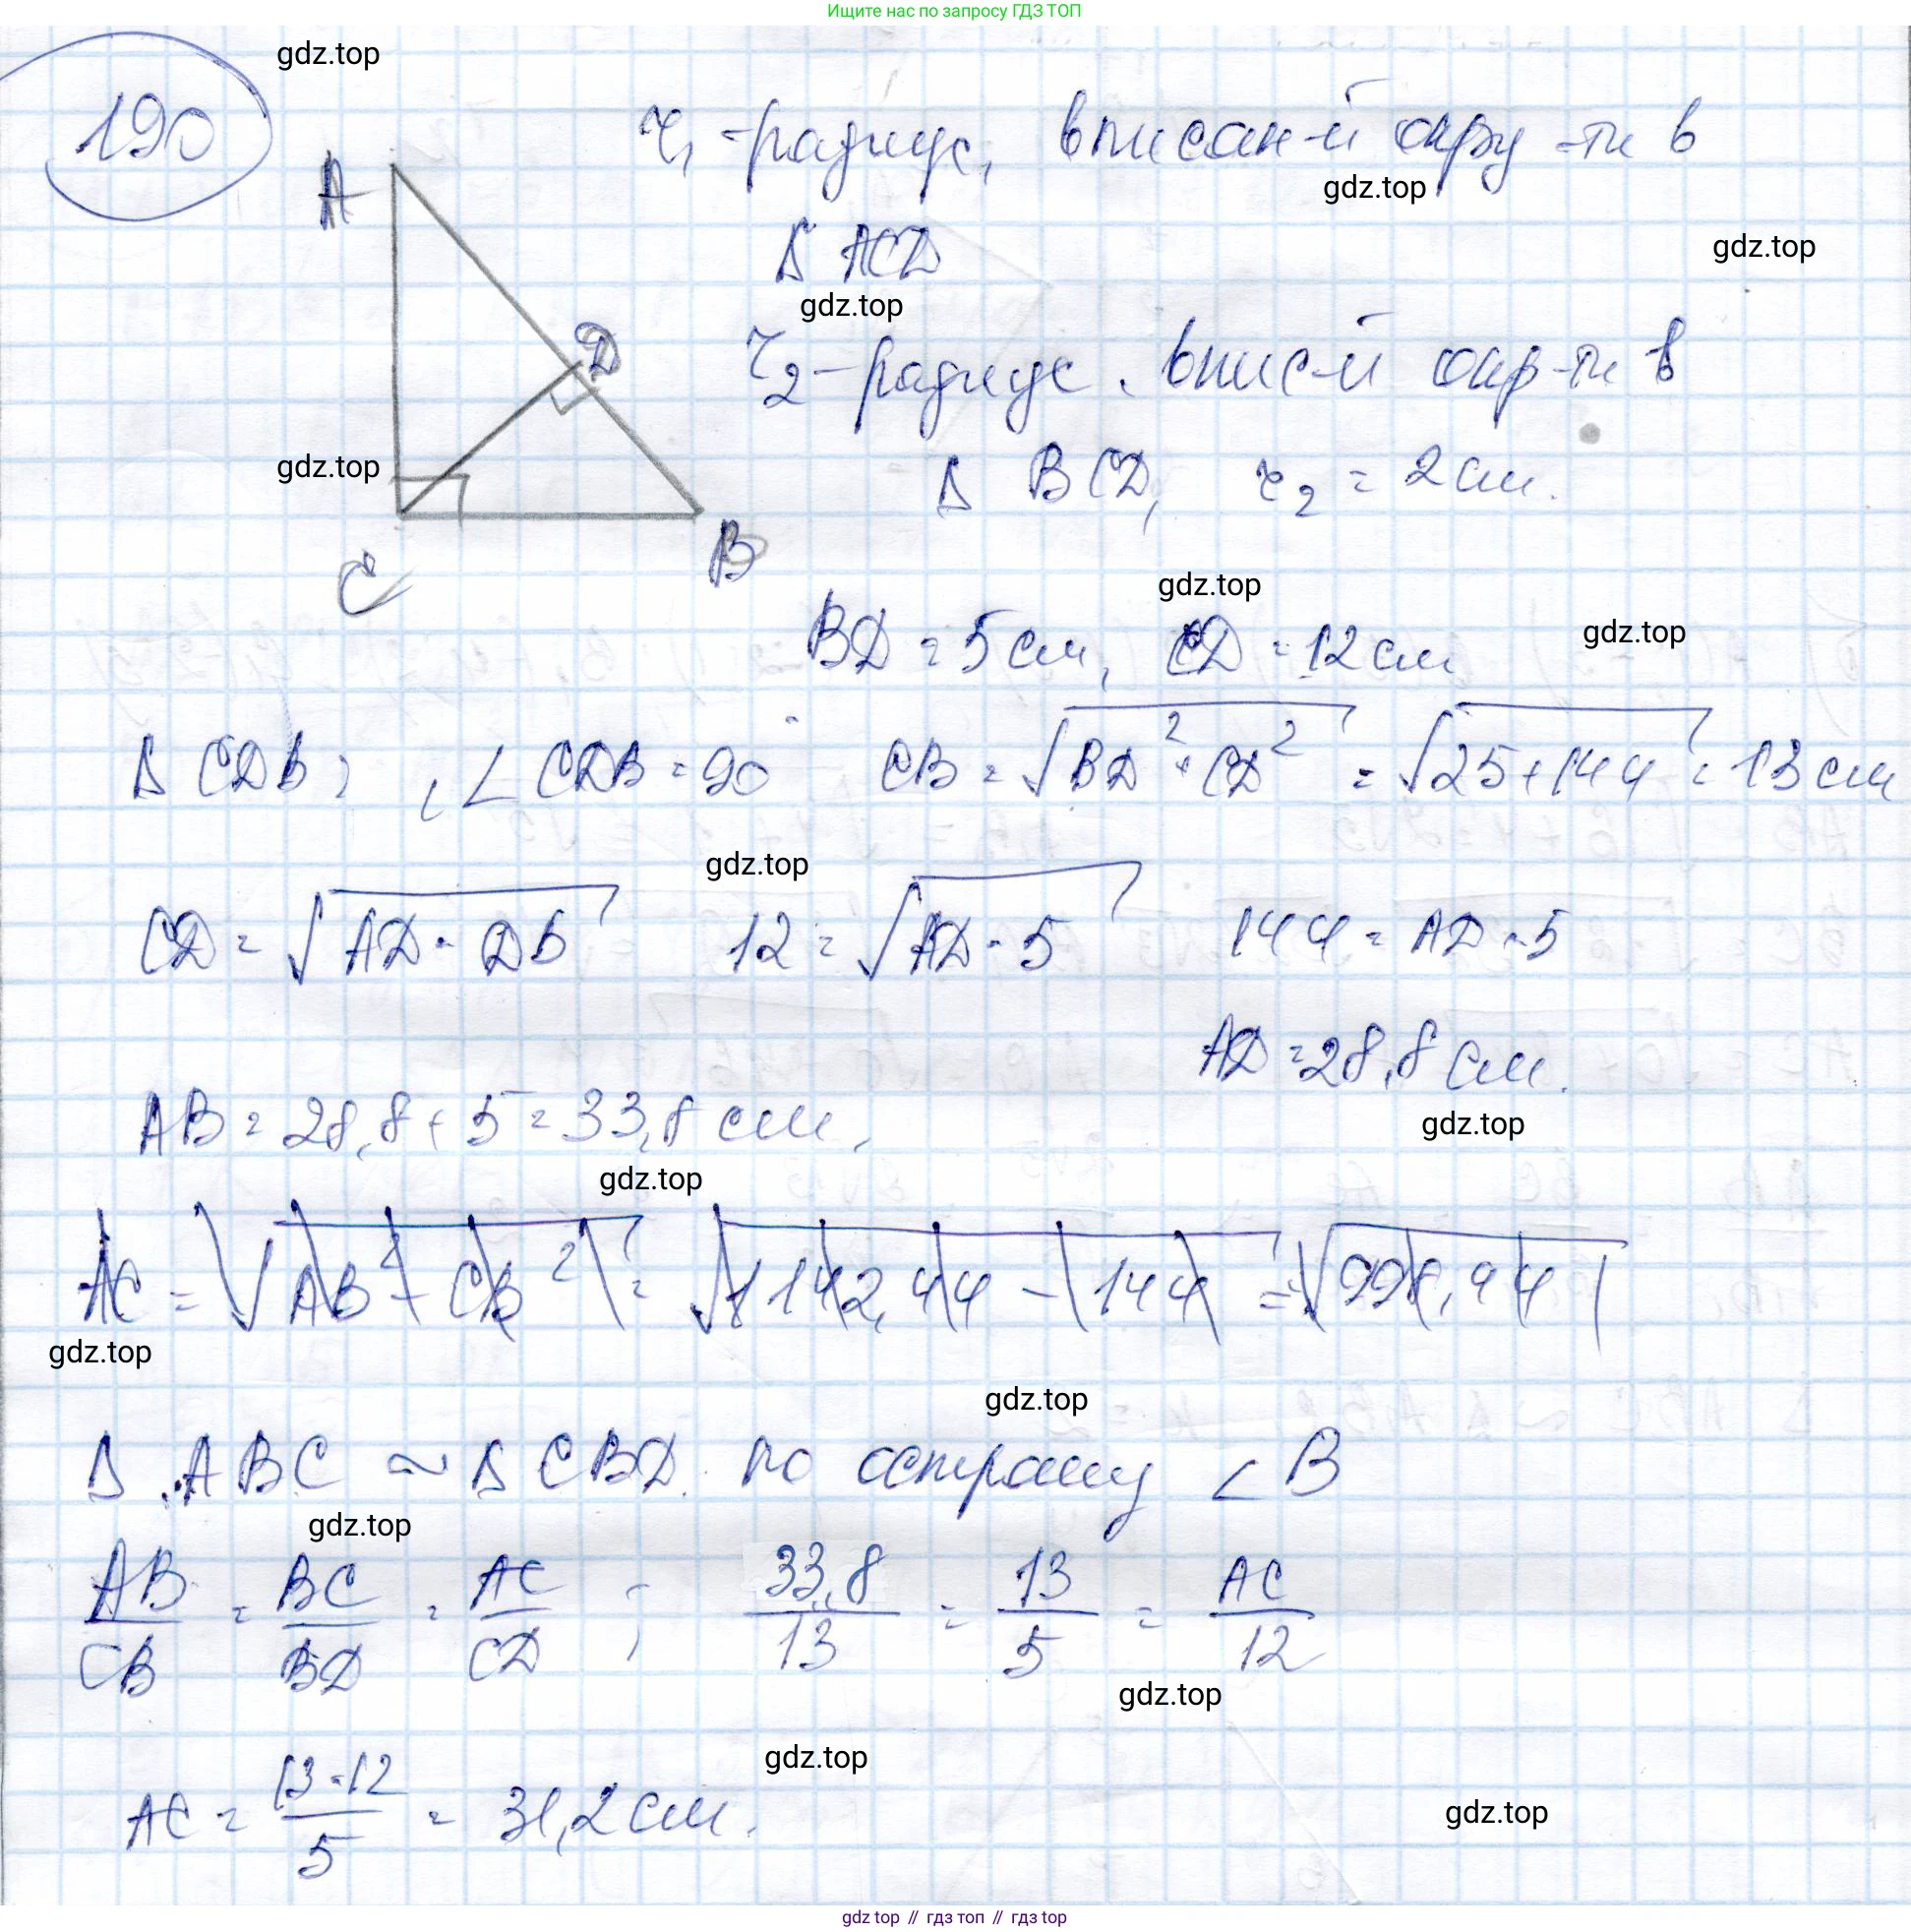 Ищите нас по запросу ГДЗ ТОП
gdz.top
190
r₁ - радиус, вписан-й окру-ти в
gdz.top
A
Δ ACD
gdz.top
gdz.top
D
r₂ - радиус. впис-й окр-ти в
gdz.top
Δ BCD, r₂ = 2 см.
C
B
gdz.top
BD = 5 см, CD = 12 см
gdz.top
Δ CDB; , ∠ CDB = 90 CB = √BD² + CD² = √25 + 144 = 13 см
gdz.top
CD = √AD · DB 12 = √AD · 5 144 = AD · 5
AD = 28,8 см.
AB = 28,8 + 5 = 33,8 см,
gdz.top
gdz.top
AC = √AB² - CB² = √1142,44 - 144 = √998,44
gdz.top
gdz.top
Δ ABC ~ Δ CBD. по острому ∠ B
gdz.top
AB/CB = BC/BD = AC/CD ; 33,8/13 = 13/5 = AC/12
gdz.top
gdz.top
AC = 13·12/5 = 31,2 см.
gdz.top
gdz top // гдз топ // гдз top